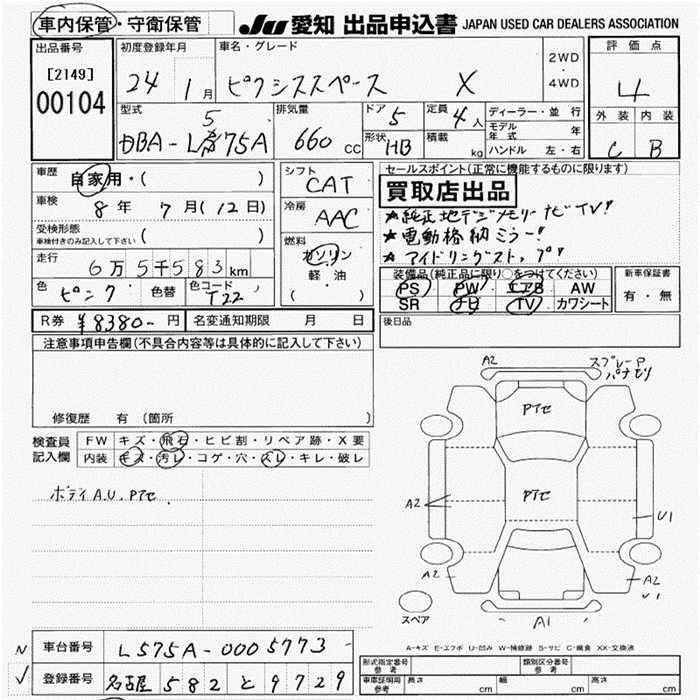 車内保管・守衛保管 JU 愛知 出品申込書 JAPAN USED CAR DEALERS ASSOCIATION
出品番号 初度登録年月 車名・グレード 2WD・4WD 評価点
[2149] 00104 24 1月 ピクシススペース X 4
型式 排気量 ドア 5 定員 4人 ディーラー・並行 外装 内装
5
DBA-L575A 660CC 形状 HB 積載 kg モデル年式 年 C B
ハンドル 左・右
車歴 自家用・( ) シフト CAT セールスポイント(正常に機能するものに限ります)
買取店出品
車検 8年 7月(12日) 冷房 AAC ★純正地デジメモリーナビTV!
受検形態 車検付きのみ記入して下さい ( ) 燃料 ガソリン 軽油 ( ) ★電動格納ミラー!
走行 6万5千583km ★アイドリングストップ!
色 ピンク 色替 色コード T22 装備品(純正品に限り○をつけてください) 新車保証書
PS PW エアB AW 有・無
SR ナビ TV カワシート
R券 ¥8380-円 名変通知期限 月 日 後日品
注意事項申告欄(不具合内容等は具体的に記入して下さい)
修復歴 有 (箇所 )
検査員記入欄 FW キズ・飛石・ヒビ割・リペア跡・X要
内装 キズ・汚レ・コゲ・穴・スレ・キレ・破レ
ボディA.U.Pアセ.
A2 スプレーP
パナモリ
Pアセ
Pアセ
A2 U1
A2 A2
U1
スペア A1
A-キズ E-エクボ U-凹み W-補修跡 S-サビ C-腐食 XX-交換済
N 車台番号 L575A-0005773
✓ 登録番号 名古屋 582 と 9729
形式指定番号 参考 類別区分番号 参考
車庫証明用 参考 長さ cm 幅 cm 高さ cm